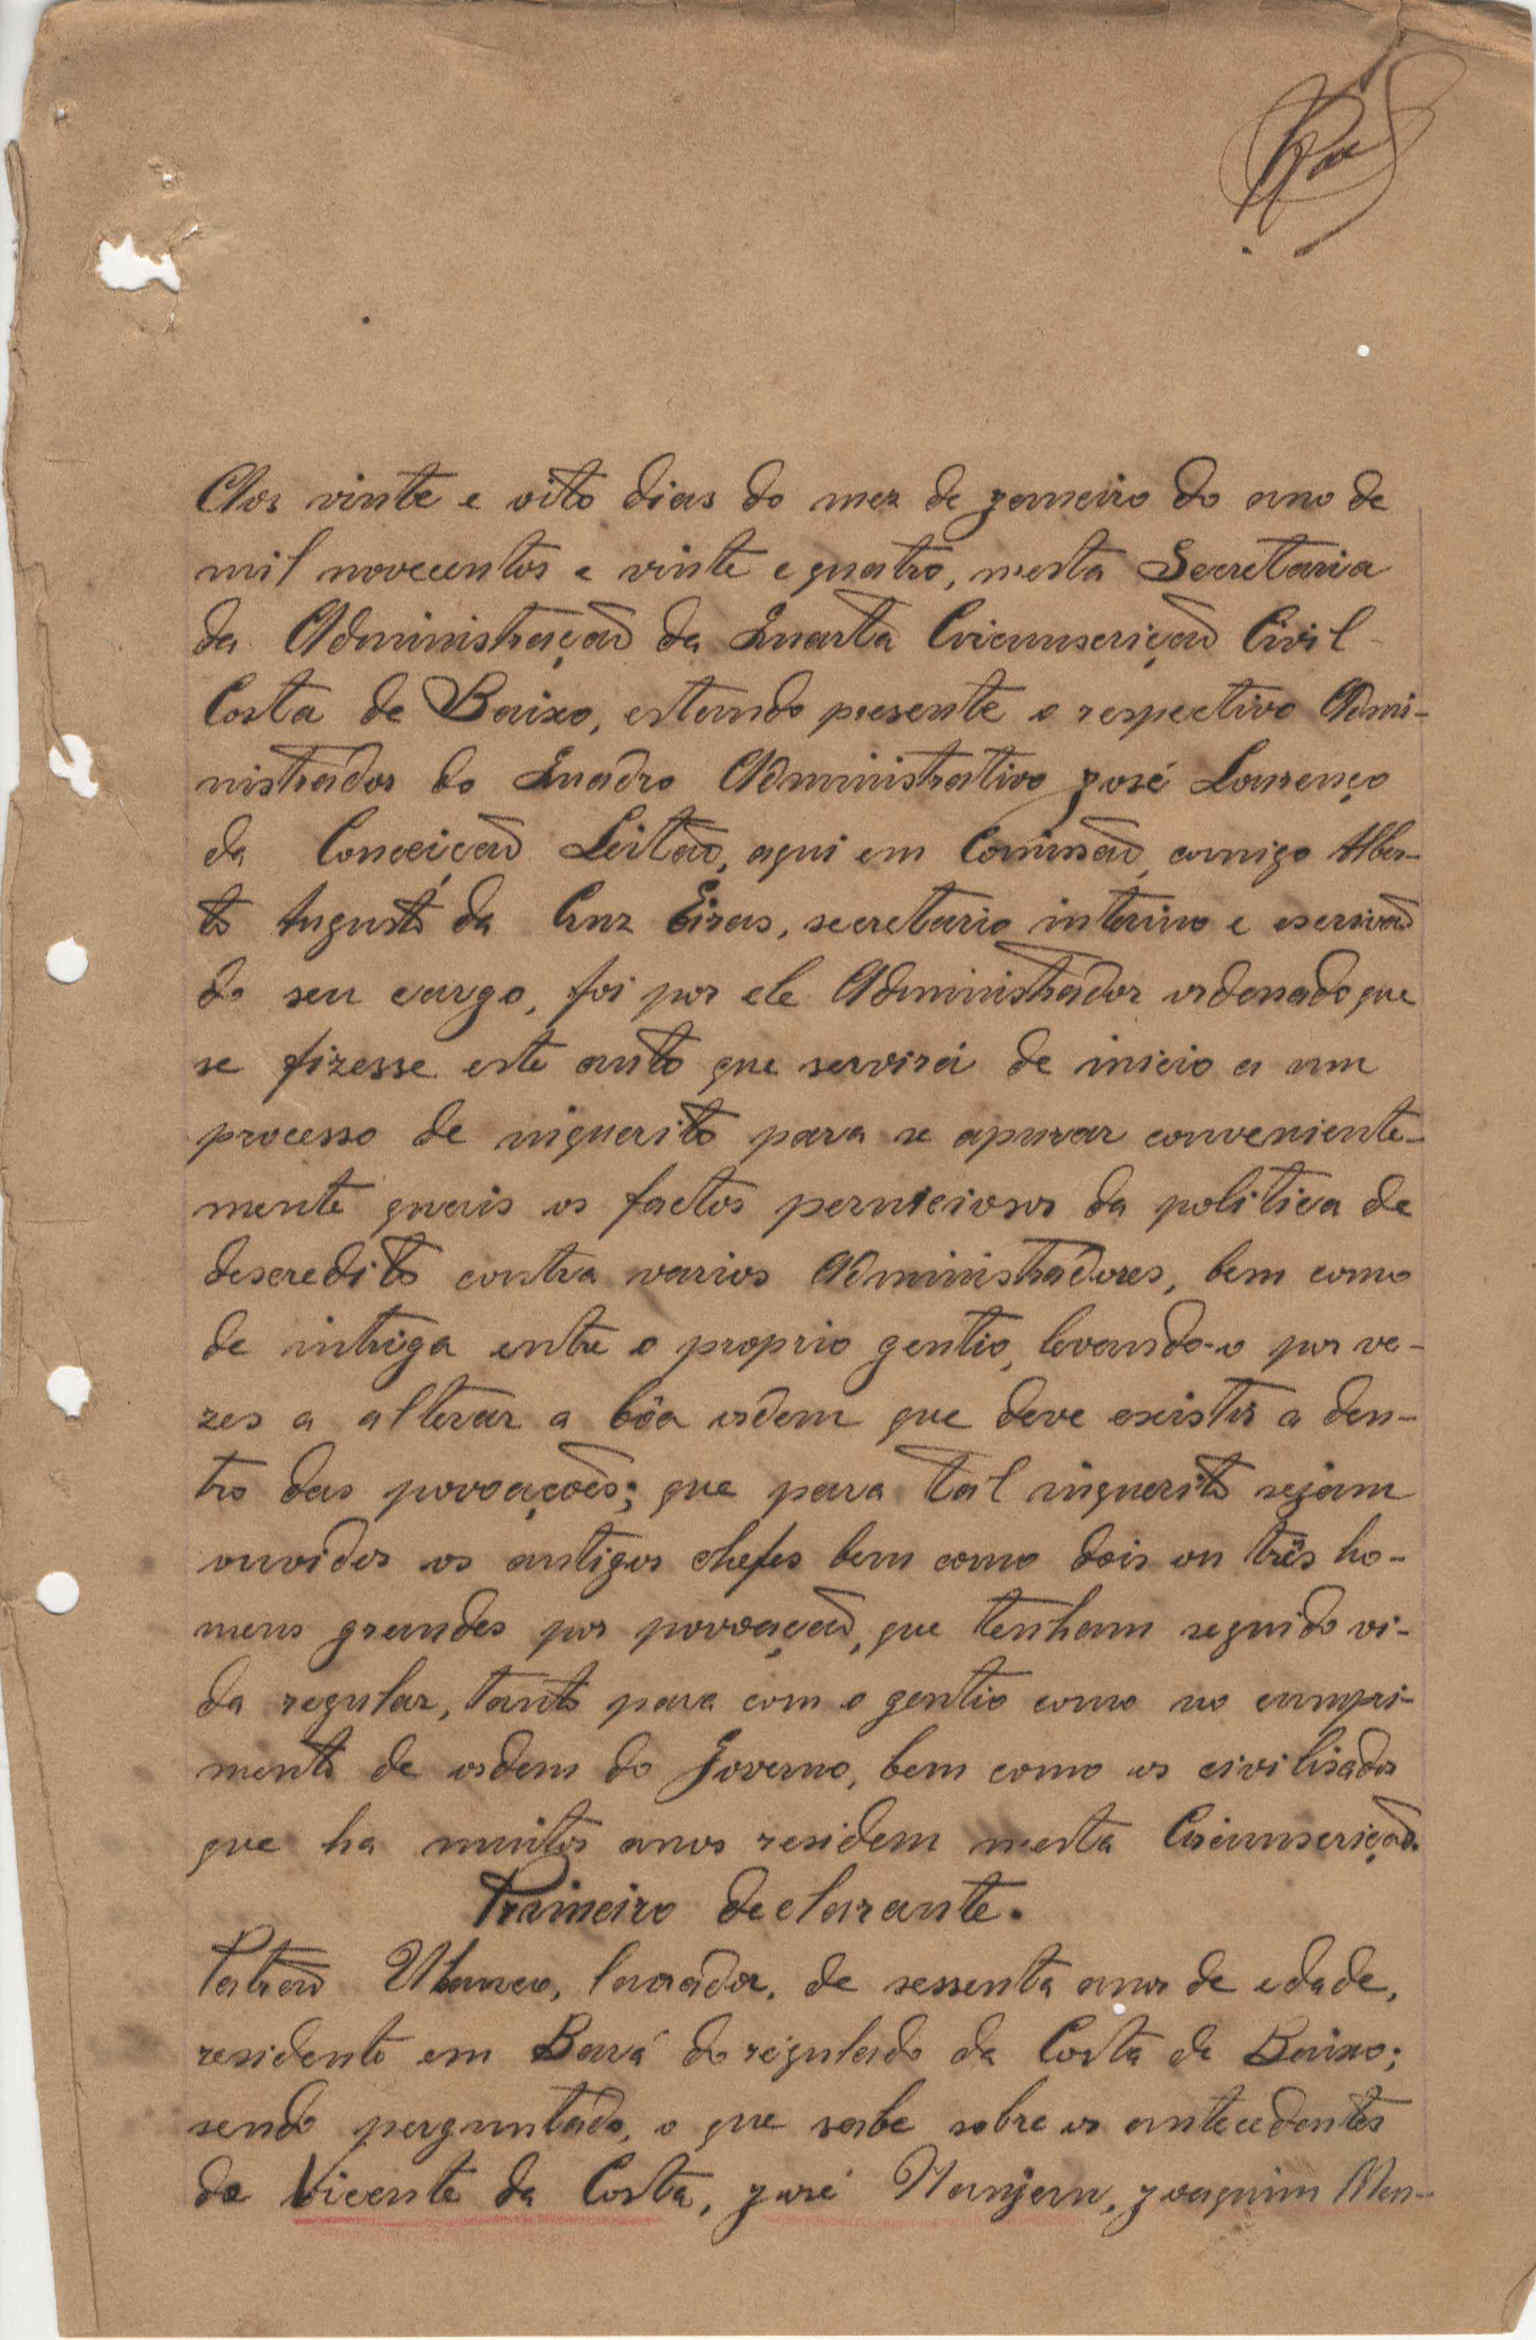 Aos vinte e oito dias do mez de janeiro do ano de
mil novecentos e vinte e quatro, nesta Secretaria
da Administração da Quarta Circunscrição Civil
Costa de Baixo, estando presente o respectivo Admi-
nistrador do Quadro Administrativo José Lourenço
da Conceição Leitão, aqui em Comissão, comigo Alber-
to Augusto da Cruz Eiras, secretario interino e escrivão
do seu cargo, foi por ele Administrador ordenado que
se fizesse este auto que servirá de inicio a um
processo de inquerito para se apurar conveniente-
mente quais os factos perniciosos da politica de
descredito contra varios Administradores, bem como
de intriga entre o proprio gentio, levando-o por ve-
zes a alterar a bôa ordem que deve existir a den-
tro das povoações; que para tal inquerito sejam
ouvidos os antigos chefes bem como dois ou três ho-
mens grandes por povoação, que tenham seguido vi-
da regular, tanto para com o gentio como no cumpri-
mento de ordem do Governo, bem como os civilisados
que ha muitos anos residem nesta Circunscrição.
Primeiro declarante.
Patrão, lavrador, de sessenta anos de edade,
residente em Bará do regulado da Costa de Baixo;
sendo perguntado, o que sabe sobre os antecedentes
de Vicente da Costa, José Nanjam, Joaquim Men-